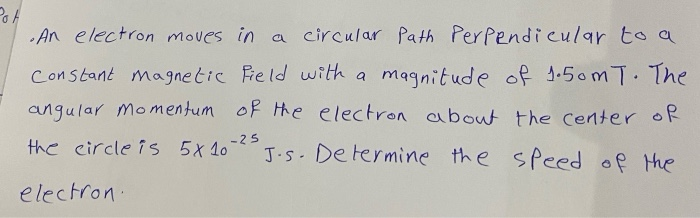 .An electron moves in a circular Path Perpendicular to a
Constant magnetic Field with a magnitude of 1.50mT. The
angular momentum of the electron about the center of
the circle is 5x10⁻²⁵ J.s. Determine the speed of the
electron.